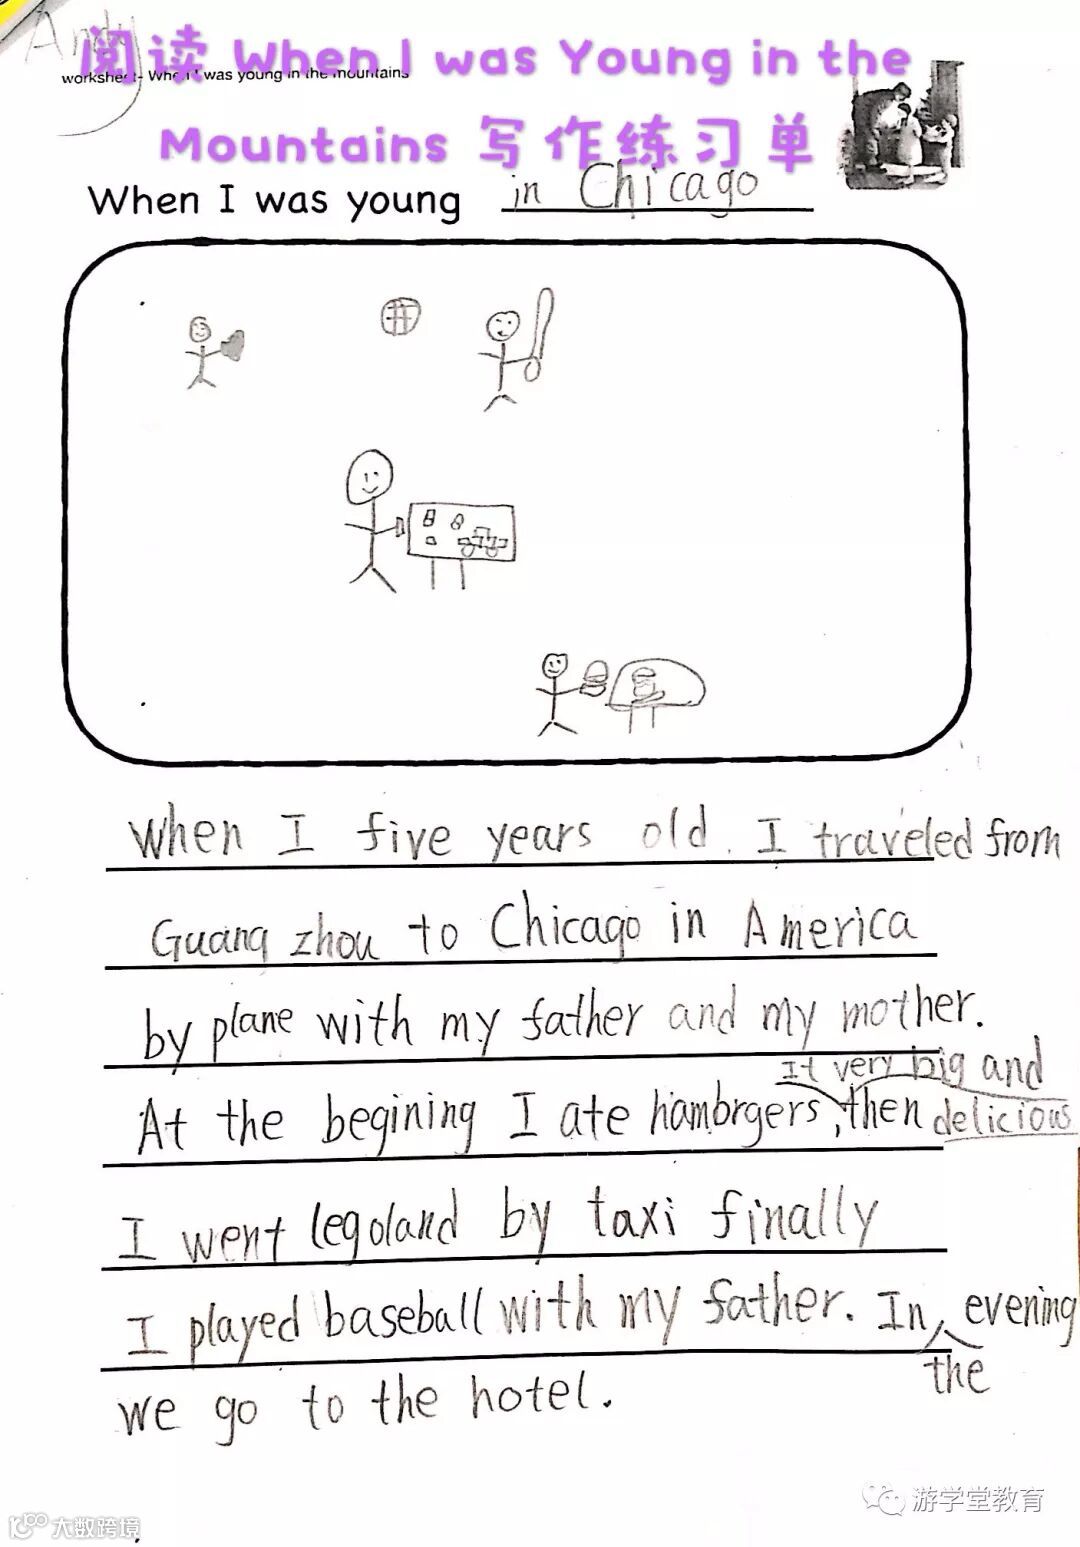 Andy
阅读 When I was Young in the
worksheet- When I was young in the mountains
Mountains 写作练习单
When I was young in Chicago
When I five years old. I traveled from
Guang zhou to Chicago in America
by plane with my father and my mother.
It very big and
At the begining I ate hambrgers, then delicious
I went legoland by taxi finally
I played baseball with my father. In evening
the
we go to the hotel.
游学堂教育
大数跨境